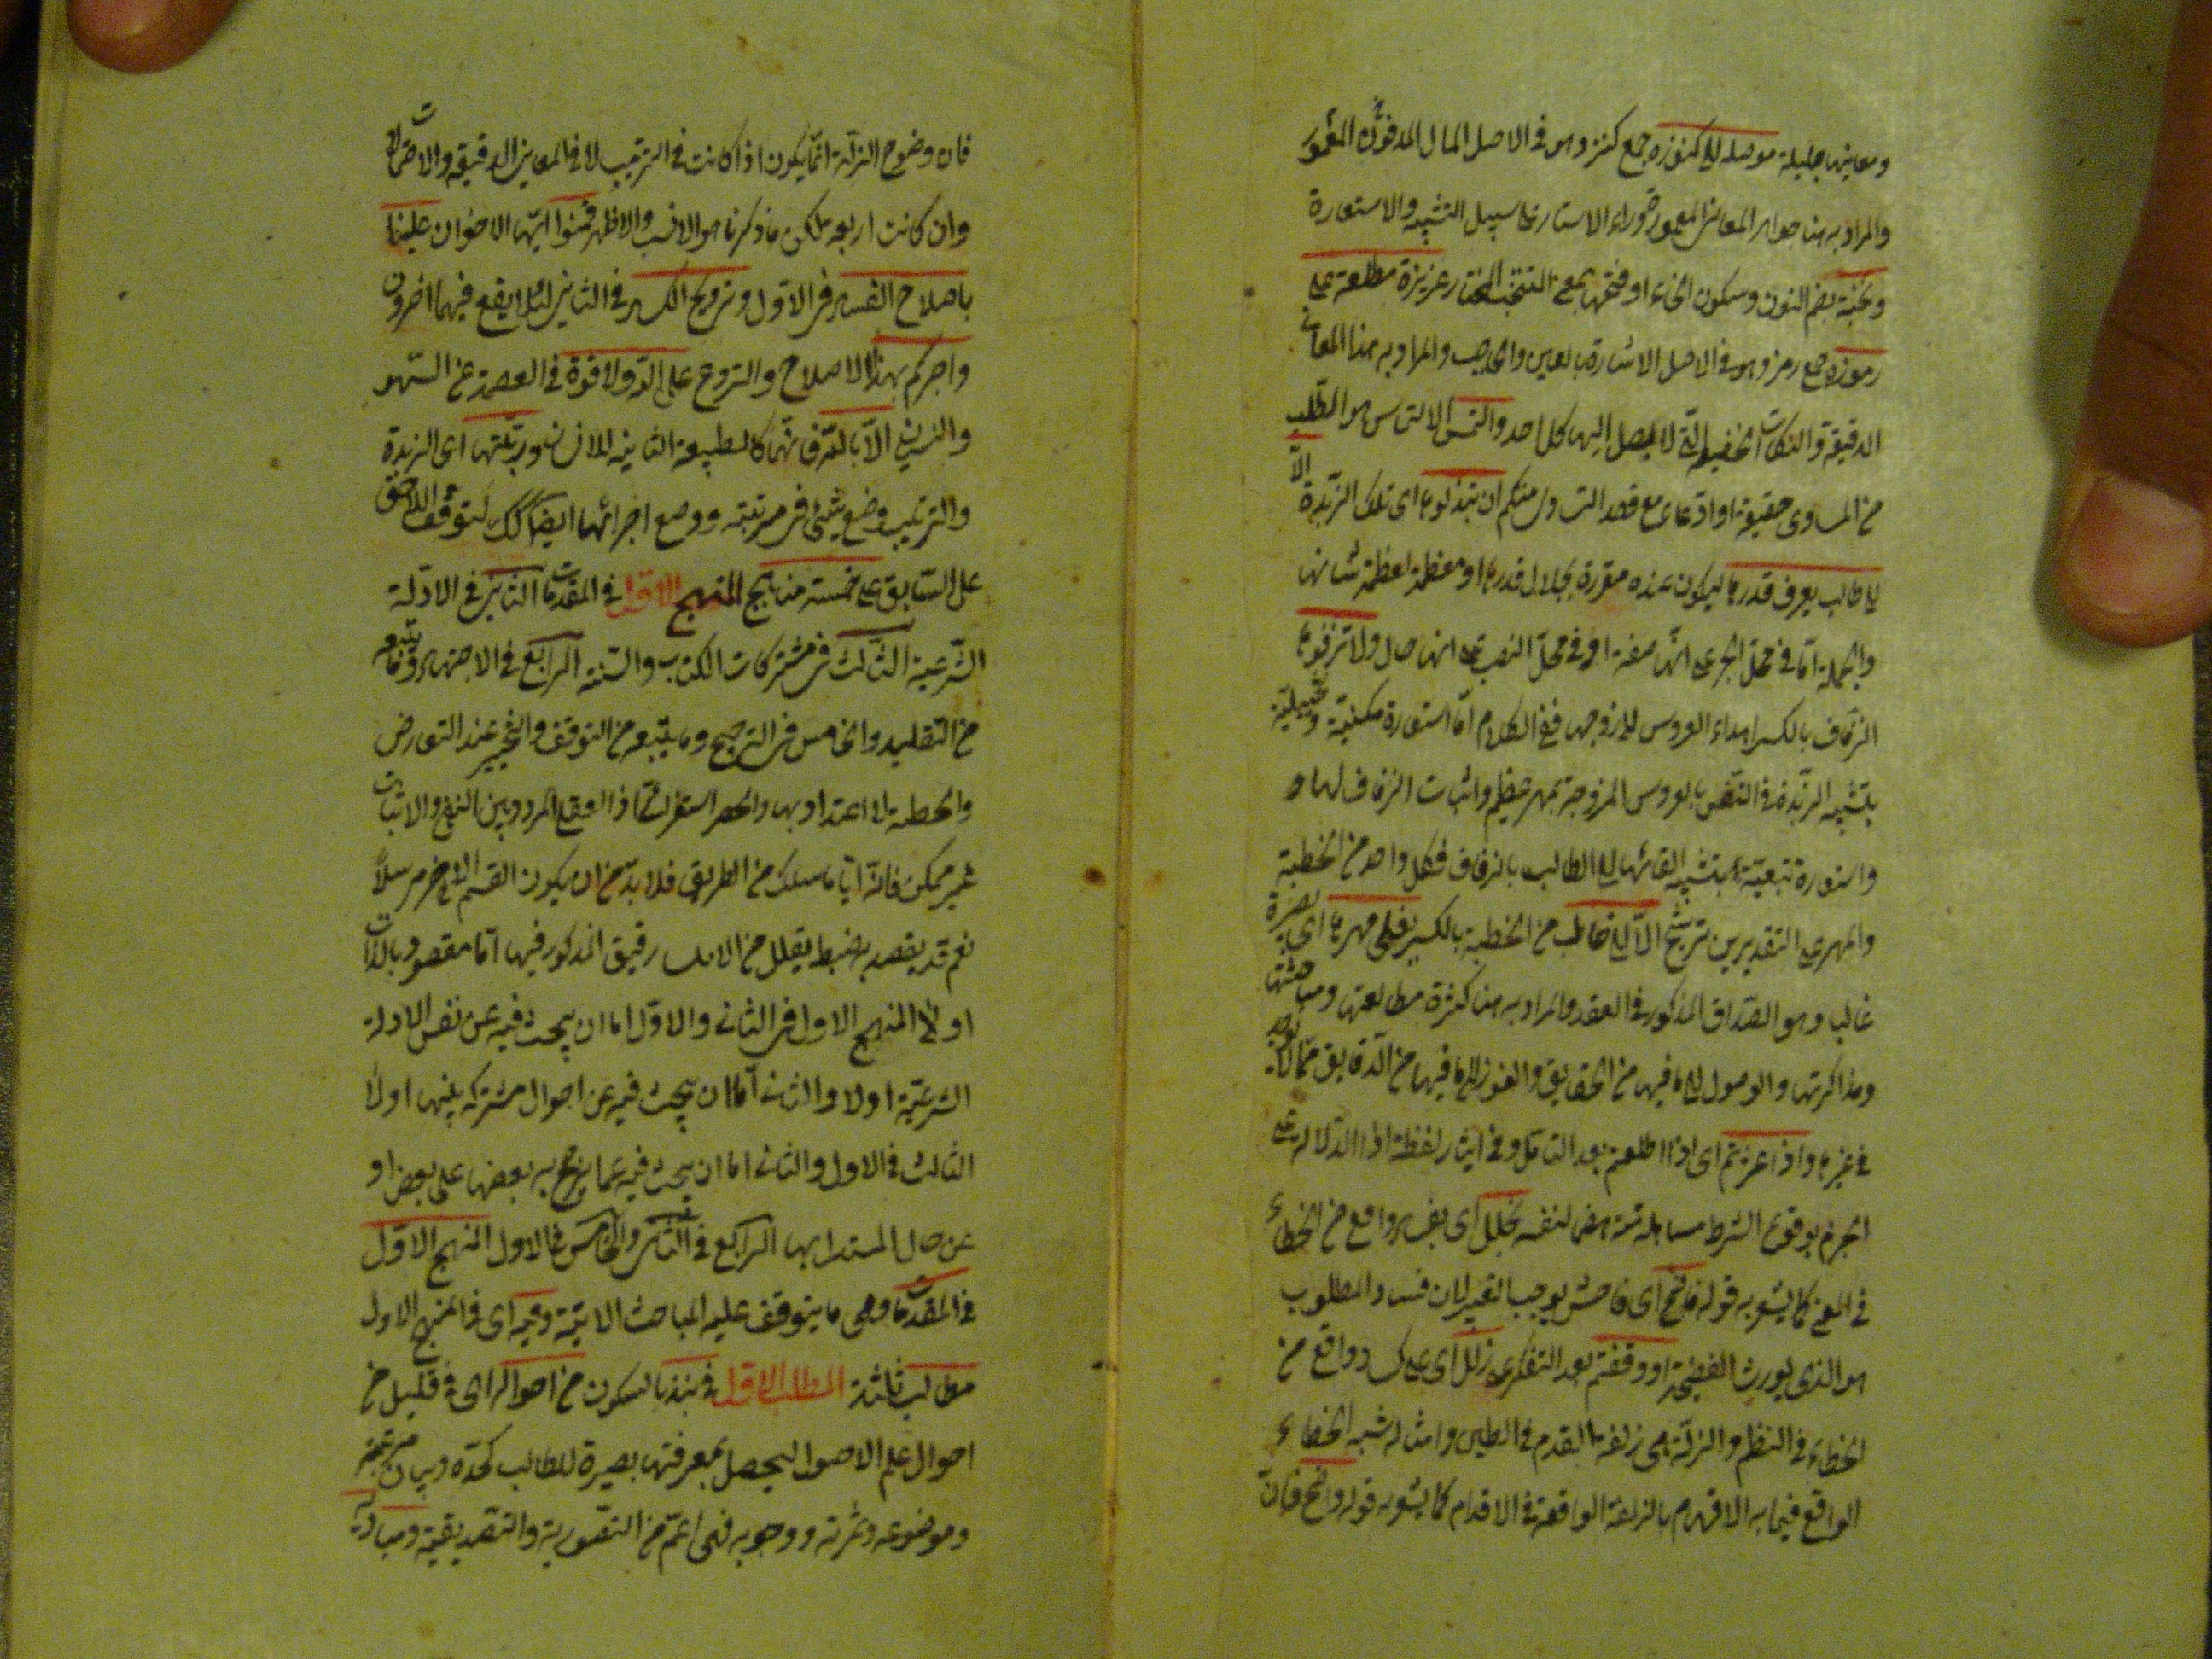 ومعاينها جليلة موصلة الى كنوزه جمع كنز وهو في الاصل المال المدفون
والمراد به هنا جواهر المعاني المعمورة وراء الاستار على سبيل التشبيه والاستعارة
ونخبة بضم النون وسكون الخاء او فتحها بمعنى المنتخب المختار عزيزة مطلعة على
رموزه جمع رمز وهو في الاصل الاشارة بالعين والحاجب والمراد به هنا المعاني
الدقيقة والنكات الخفية التي لا يصل اليها كل احد والتمس الالتماس هو الطلب
من المساوي حقيقة او ادعاء مع قصد التساوي منكم ان لا تبذلوها اى تلك الزبدة الا
الى طالب يعرف قدرها ليكون عنده مقررة بجلال قدرها او معظمة لعظمة شانها
والجملة اما في محل الجر على انها صفة او في محل النصب على انها حال ولا تزفوها
الزفاف بالكسر اهداء العروس الى زوجها ففي الكلام اما استعارة مكنية وتخييلية
بتشبيه الزبدة في النفس بالعروس المزوجة بمهر عظيم واثبات الزفاف لها و
استعارة تبعية بتشبيه القائها الى الطالب بالزفاف فكل واحد من الخطبة
والمهر على التقديرين ترشيح الا الى خاطب من الخطبة بالكسر يغلى مهرها اى
غالب وهو الصداق المذكور في العقد والمراد به هنا كثرة مطالعتها ومباحثتها
ومذاكرتها والوصول الى ما فيها من الحقايق والفوز الى ما فيها من الدقايق مما لا يوجد
في غيرها واذا عثرتم اى اذا اطلعتم بعد التامل وفي ايثار لفظة اذا الدالة على
الجزم بوقوع الشرط مساهلة هضما لنفسه بخلل اى بفساد واقع من الخطاء
في المعنى كما يشعر به قوله فاضح اى فاحش يوجب التغيير لان فساد المطلوب
هو الذي يورث الفضيحة او وقفتم بعد التفكر على زلل اى على واقع من
الخطاء في النظم والزلة هى زلقة القدم في الطين وامثاله شبه الخطاء
الواقع فيما به الافهام بالزلقة الواقعة في الاقدام كما يشعر به قوله واضح فان
فان وضوح الزلة انما يكون اذا كانت في الترتيب لا في المعاني الدقيقة والاحتمالات
وان كانت اربعة لكن ما ذكرنا هو الانسب والاظهر فمنوا ايها الاخوان علينا
باصلاح الفساد في الاول وترويج الكساد في الثاني لئلا يقع فيهما اخرون
واجركم بهذا الاصلاح والترويج على الله ولا قوة في العصمة عن السهو
والنسيان الا بالله فانهما كالطبيعة الثانية للانسان ورتبتها اى الزبدة
والترتيب وضع شيئ في مرتبته ووضع اجزائها ايضا كك لتوقف اللاحق
على السابق على خمسة مناهج المنهج الاول في المقدمات الثاني في الادلة
الشرعية الثالث في مشتركات الكتاب والسنة الرابع في الاجتهاد وما يتبعه
من التقليد والخامس في الترجيح وما يتبعه من التوقف والتخيير عند التعارض
والخطبة لا اعتداد بها والحصر استقرائي اذ العقلي المردد بين النفي والاثبات
غير ممكن فانه ايا ما سلك من الطريق فلا بد من ان يكون القسم الاخر مرسلا
نعم قد يقصد به ضبط يقلل من الانتشار فيق المذكور فيها اما مقصود بالذات
او لا المنهج الاول في الثاني والاول اما ان يبحث فيه عن نفس الادلة
الشرعية اولا والثاني اما ان يبحث فيه عن احوال مشتركة بينها اولا
الثالث في الاول والثاني اما ان يبحث فيه عما يرجح به بعضها على بعض او
عن حال المستدل بها الرابع في الثاني والخامس في الاول المنهج الاول
في المقدمات وهى ما يتوقف عليه المباحث الاتية وفيه اى في المنهج الاول
مطالب ثلثة المطلب الاول في نبذ بالسكون من احواله اى في قليل من
احوال علم الاصول ليحصل بمعرفتها بصيرة للطالب كحده وبيان مرتبته
وموضوعه وثمرته ووجوبه فهى اعم من التصورية والتصديقية ومباديه